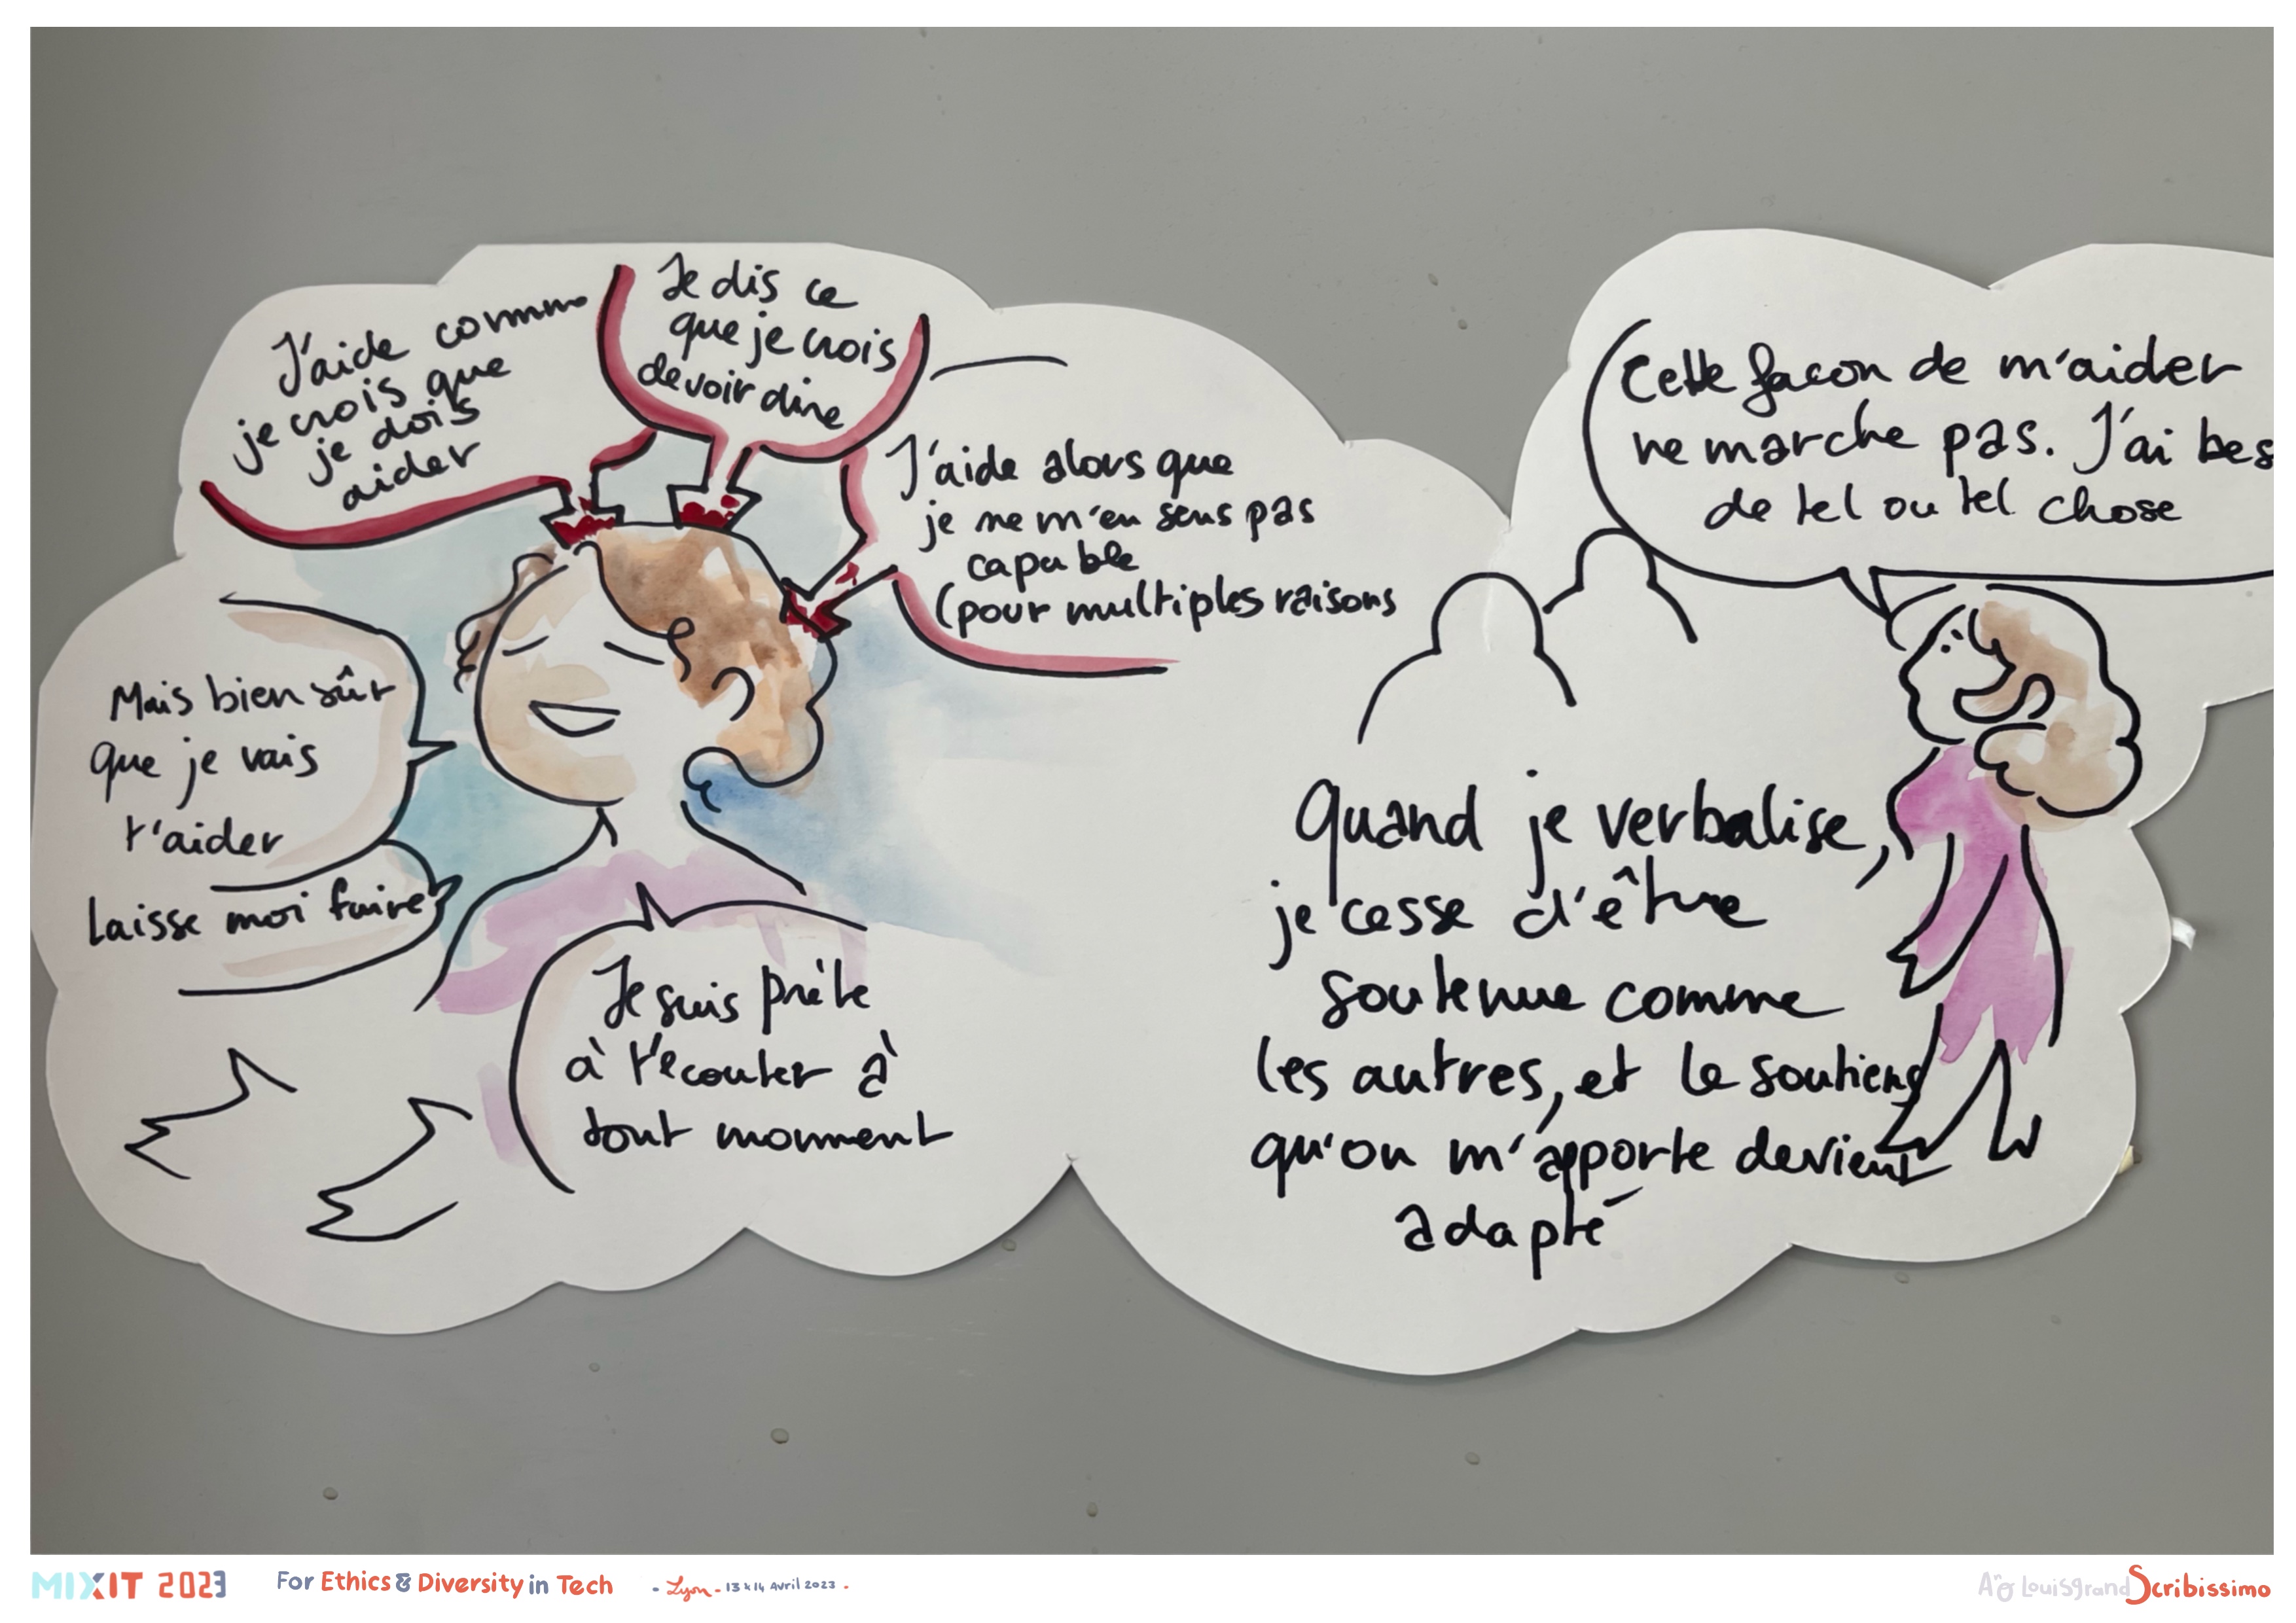 J'aide comme
je crois que
je dois
aider
Je dis ce
que je crois
devoir dire
J'aide alors que
je ne m'en sens pas
capable
(pour multiples raisons
Mais bien sûr
que je vais
t'aider
Laisse moi faire
Je suis prête
à t'écouter à
tout moment
Cette façon de m'aider
ne marche pas. J'ai bes
de tel ou tel chose
Quand je verbalise,
je cesse d'être
soutenue comme
les autres, et le soutiens
qu'on m'apporte devient
adapté
MIXIT 2023
For Ethics & Diversity in Tech
- Lyon - 13 & 14 Avril 2023 -
Louisgrand Scribissimo